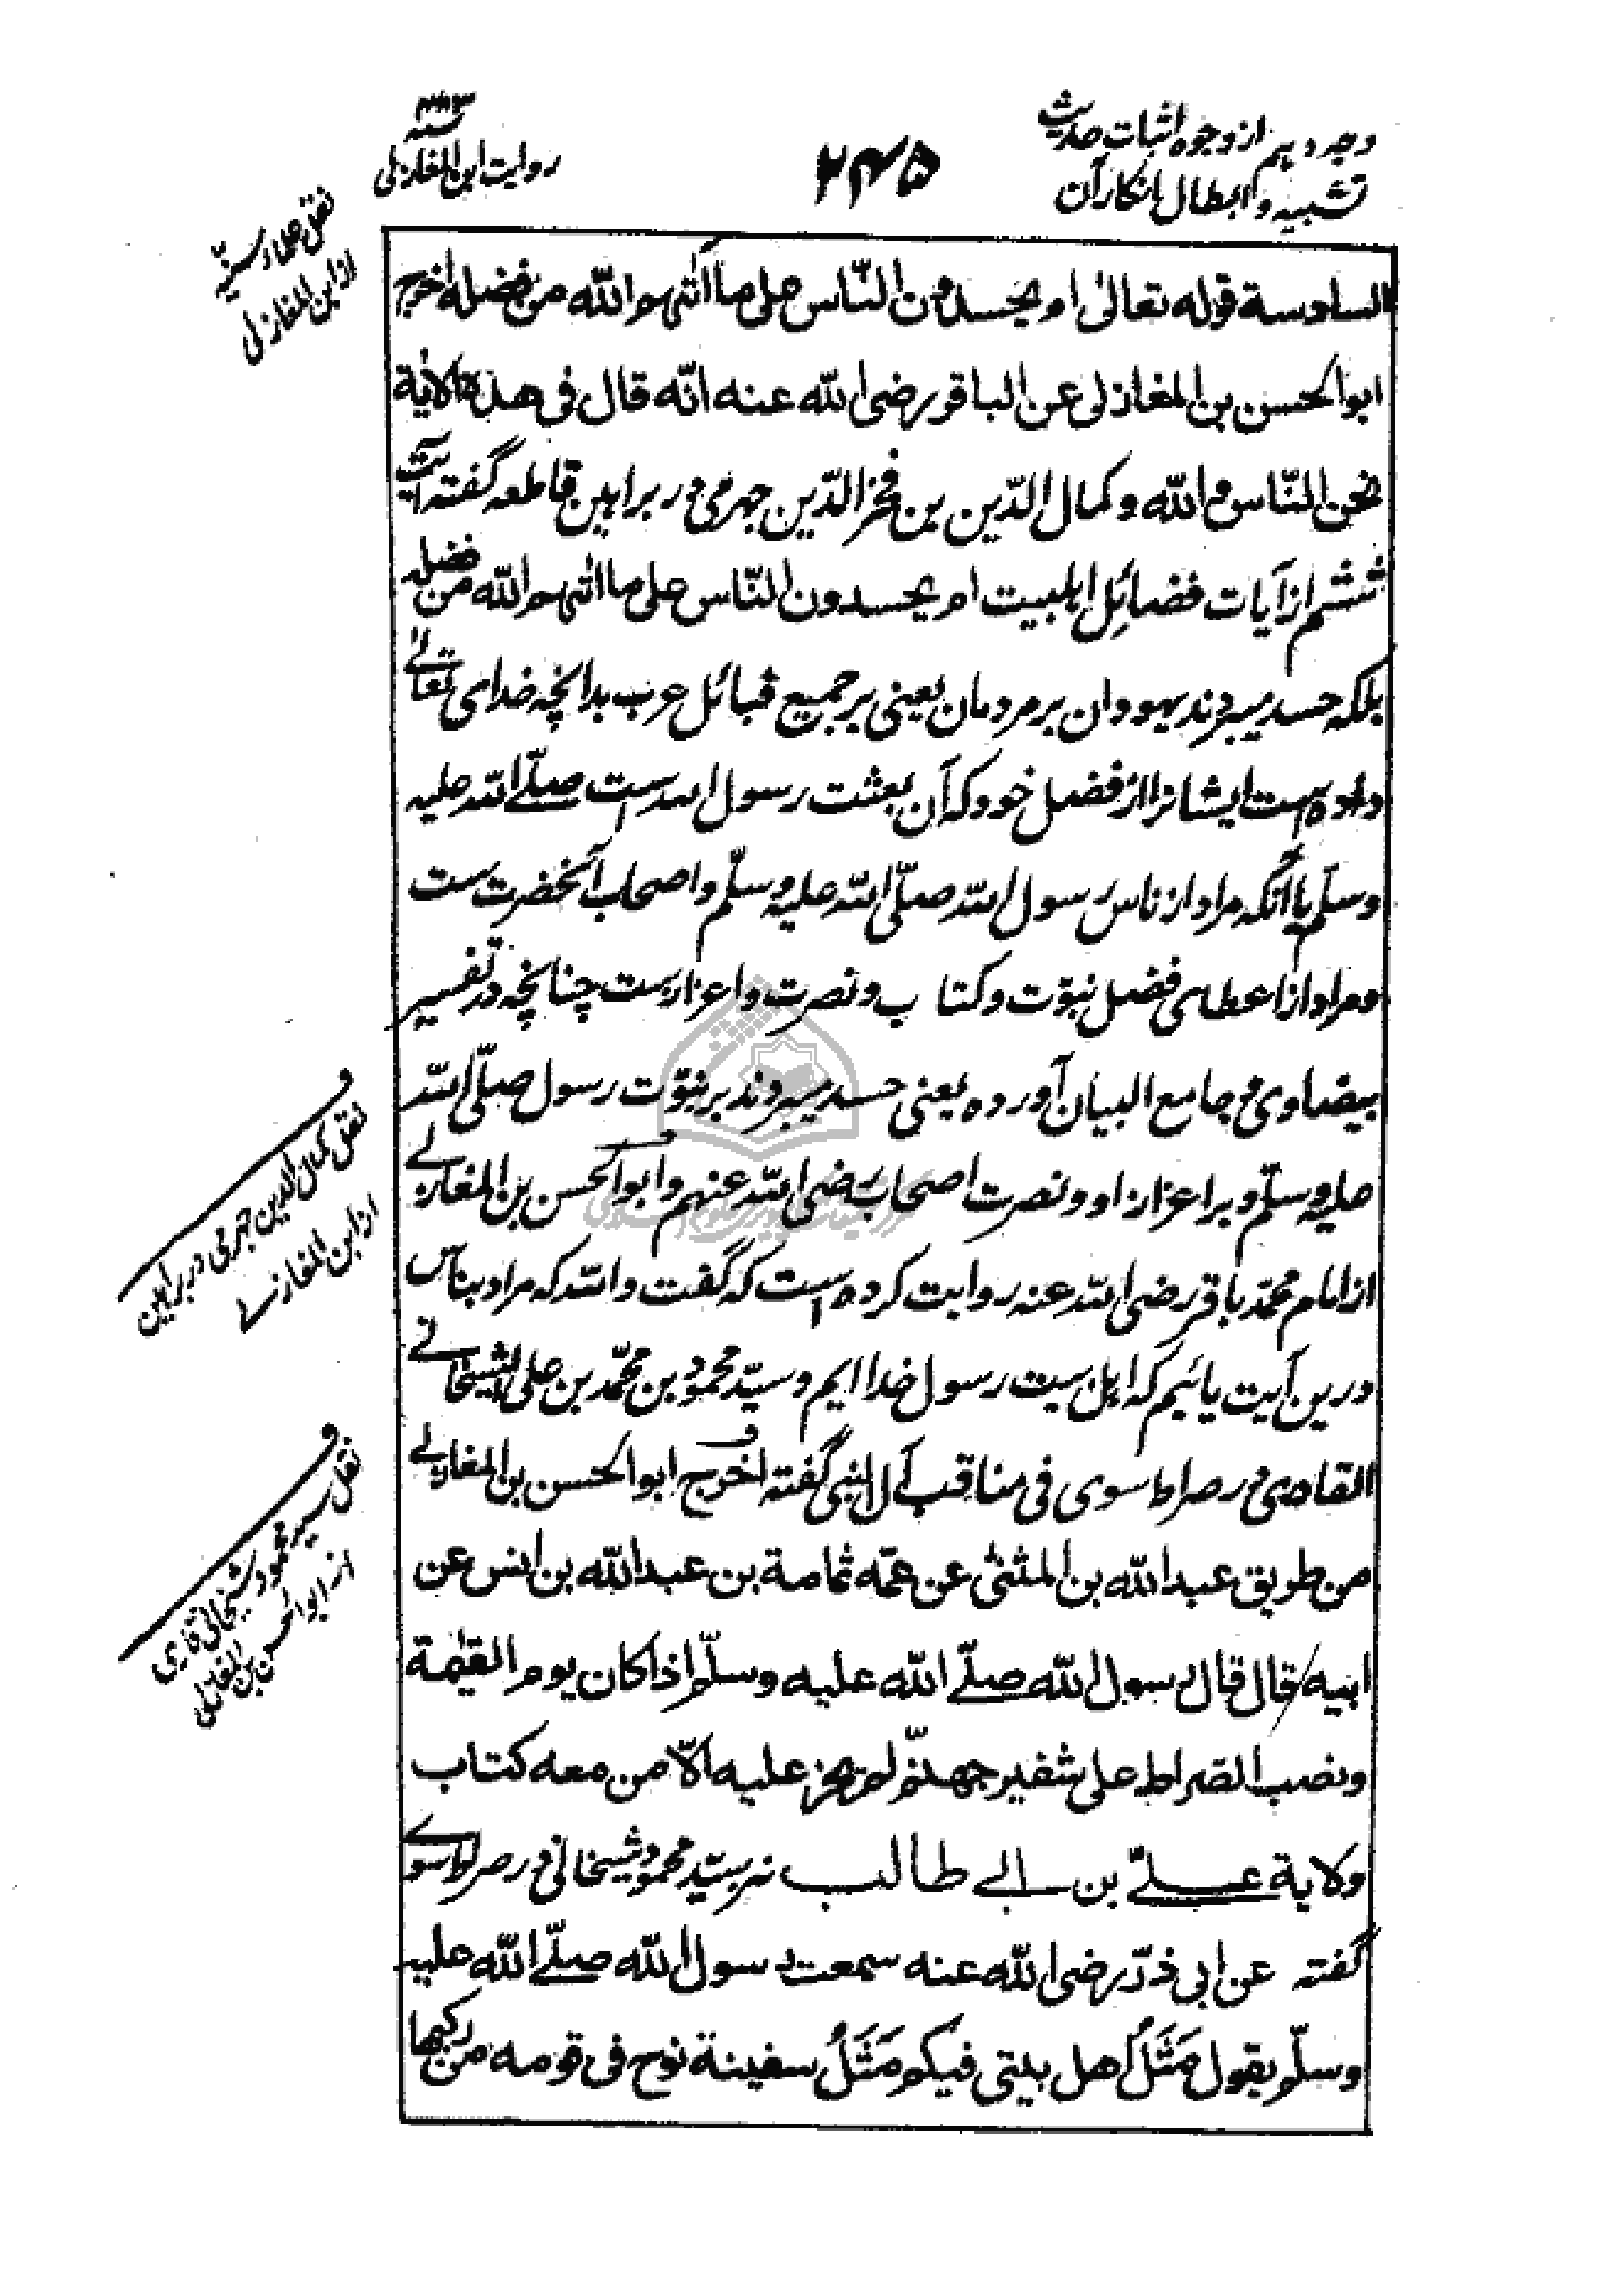 وجه دهم از وجوه اثبات حدیث
تشبیه و ابطال انکار آن
۲۴۵
۳۸۳
روایت ابن المغازلی
نقل علماء سنیّه
از ابن المغازلی
السادسة قوله تعالیٰ ام یحسدون النّاس علی ما اٰتٰهم الله من فضله اخرج
ابو الحسن بن المغازلی عن الباقر رضی الله عنه انّه قال فی هذه الاٰیة
نحن النّاس و الله و کمال الدّین بن فخر الدّین جهرمی در براهین قاطعه گفته آیت
ششم از آیات فضائل اہلبیت ام یحسدون النّاس علی ما اٰتٰهم الله من فضله
بلکه حسد میبرند یهودان بر مردمان یعنی بر جمیع قبائل عرب بدانچه خدای تعالے
داده است ایشانرا از فضل خود که آن بعثت رسول الله است صلّے الله علیه
وسلّم یا آنکه مراد از ناس رسول الله صلّی الله علیه و سلّم و اصحاب آنحضرت ست
و مراد از اعطای فضل نبوّت و کتاب و نصرت و اعزازست چنانچه در تفسیر
بیضاوی و جامع البیان آورده یعنی حسد میبردند بر نبوّت رسول صلّی الله
علیه و سلّم و بر اعزاز او و نصرت اصحاب رضی الله عنهم و ابو الحسن بن المغازلے
از امام محمّد باقر رضی الله عنه روایت کرده است که گفت والله که مراد بناس
درین آیت مائیم که اہل بیت رسول خدا ایم و سیّد محمود بن محمّد بن علی الشیخانے
القادری در صراط سوی فی مناقب آل النبی گفته اخرج ابو الحسن بن المغازلے
من طریق عبد الله بن المثنی عن عمّه ثمامة بن عبد الله بن انس عن
ابیه قال قال رسول الله صلّے الله علیه وسلّم اذا کان یوم القیٰمة
و نصب الصّراط علی شفیر جهنّم لم یجز علیه الّا من معه کتاب
ولایة علے بن ابے طالب نیز سیّد محمود شیخانی در صراط سوے
گفته عن ابی ذرّ رضی الله عنه سمعت رسول الله صلّے الله علیه
وسلّم یقول مَثَلُ اهل بیتی فیکم مَثَلُ سفینة نوح فی قومه من رکبها
نقل کمال الدین جهرمی در براهین
از ابن المغازلے
نقل سید محمود شیخانی قادری
از ابو الحسن بن المغازلی